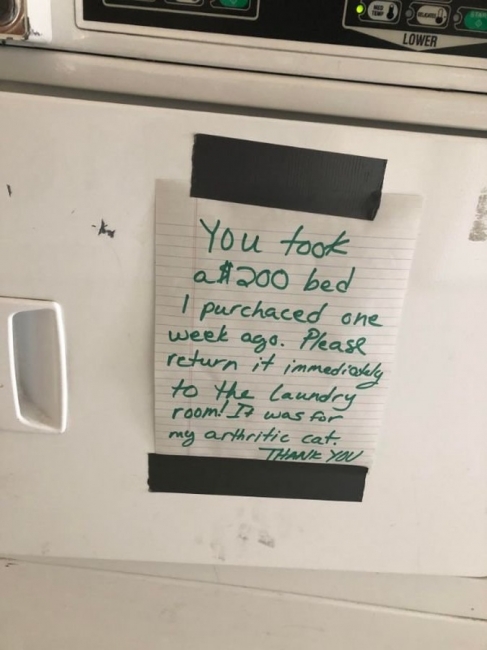 MED TEMP
DELICATES
LOWER
You took
a $200 bed
I purchased one
week ago. Please
return it immediately
to the Laundry
room! It was for
my arthritic cat.
THANK YOU